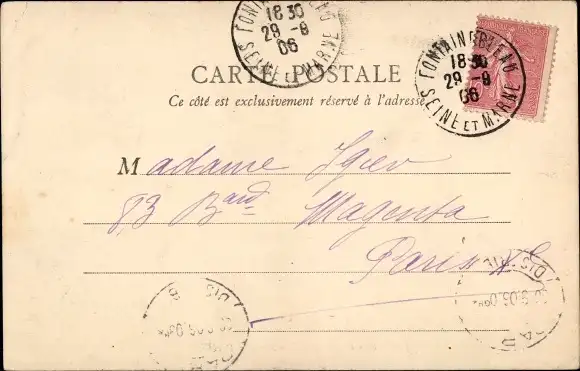 FONTAINEBLEAU
18 30
29 - 9
06
SEINE ET MARNE
FONTAINEBLEAU
18 30
29 - 9
06
SEINE ET MARNE
CARTE POSTALE
Ce côté est exclusivement réservé à l'adresse
Madame
83 Bard Magenta
Paris